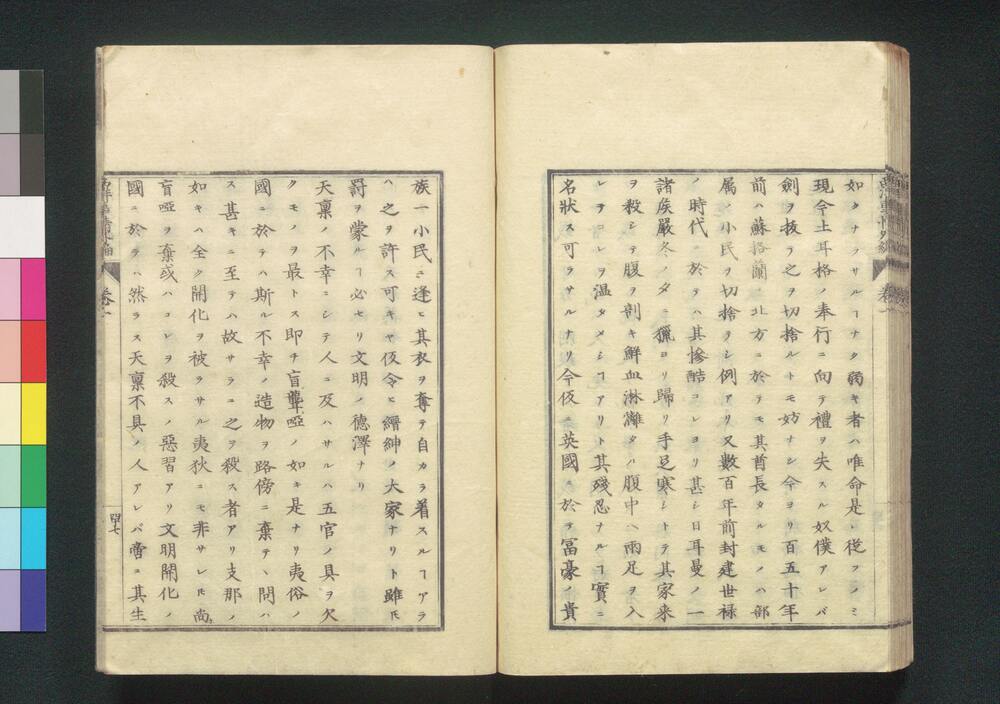 如クナラサルヿナク弱キ者ハ唯命是レ從フノミ
現今土耳格ノ奉行ニ向テ禮ヲ失スル奴僕アレバ
劍ヲ抜テ之ヲ切捨ルトモ妨ナシ今ヨリ百五十年
前ハ蘇格蘭ノ北方ニ於テモ其酋長タルモノハ部
属ノ小民ヲ切捨ラシ例アリ又數百年前封建世禄
ノ時代ニ於テハ其惨酷コレヨリ甚シ日耳曼ノ一
諸侯嚴冬ノ夕ニ獵ヨリ歸リ手足寒シトテ其家来
ヲ殺シテ腹ヲ剖キ鮮血淋漓タル腹中ヘ兩足ヲ入
レテコレヲ温タメシヿアリト其殘忍ナルヿ實ニ
名状ス可ラサルナリ今仮ニ英國ニ於テ冨豪ノ貴
族一小民ニ逢ヒ其衣ヲ奪テ自カラ着スルヿアラ
ハ之ヲ許ス可キヤ仮令ヒ縉紳ノ大家ナリト雖𪜈
罰ヲ蒙ルヿ必セリ文明ノ德澤ナリ
天禀ノ不幸ニシテ人ニ及ハサルハ五官ノ具ヲ欠
クモノヲ最トス即チ盲聾啞ノ如キ是ナリ夷俗ノ
國ニ於テハ斯ル不幸ノ造物ヲ路傍ニ棄テヽ問ハ
ス甚キニ至テハ故サラニ之ヲ殺ス者アリ支那ノ
如キハ全ク開化ヲ被ラサル夷狄ニモ非サレ𪜈尚
盲啞ヲ棄或ハコレヲ殺スノ惡習アリ文明開化ノ
國ニ於テハ然ラス天禀不具ノ人アレバ啻ニ其生
西洋事情外編 卷一
四十七